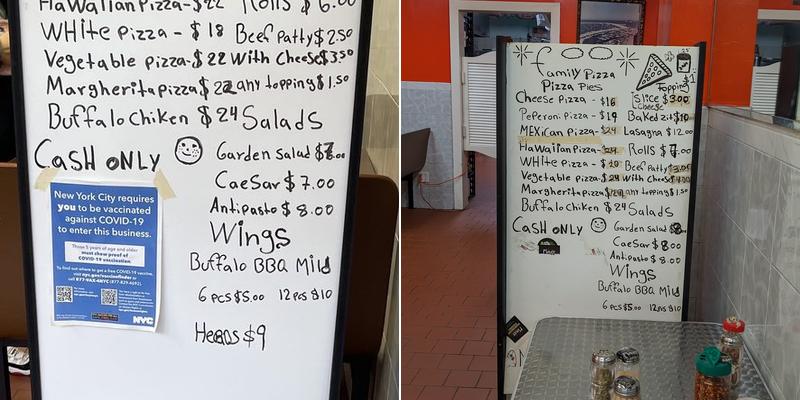 HaWaiian Pizza-$22 Rolls $6.00
WHite Pizza - $18 Beef Patty $2.50
Vegetable pizza-$22 With Cheese $3.50
Margherita pizza $22 any topping $1.50
Buffalo chiken $24 Salads
CasH oNLY Garden Salad $7.00
CaeSar $7.00
Antipasto $8.00
Wings
Buffalo BBQ Mild
6 pcs $5.00 12 pcs $10
Heros $9
New York City requires
you to be vaccinated
against COVID-19
to enter this business.
Those 5 years of age and older
must show proof of
COVID-19 vaccination
To find out where to get a free COVID-19 vaccine,
visit nyc.gov/vaccinefinder or
call 877-VAX-4NYC (877-829-4692).
NYC
Family Pizza
Pizza Pies
Topping $1
Cheese Pizza - $16 Slice $3.00
Cheese
Peperoni Pizza - $19 Baked ziti $10
MEXican Pizza - $24 Lasagna $12.00
HaWaiian Pizza - $24 Rolls $7.00
WHite Pizza - $20 Beef Patty $3.00
Vegetable pizza-$24 With Cheese $4.00
Margherita pizza $24 any topping $1.50
Buffalo Chiken $24 Salads
CasH oNLY Garden Salad $8.00
CaeSar $8.00
Antipasto $8.00
Wings
Buffalo BBQ Mild
6 pcs $5.00 12 pcs $10